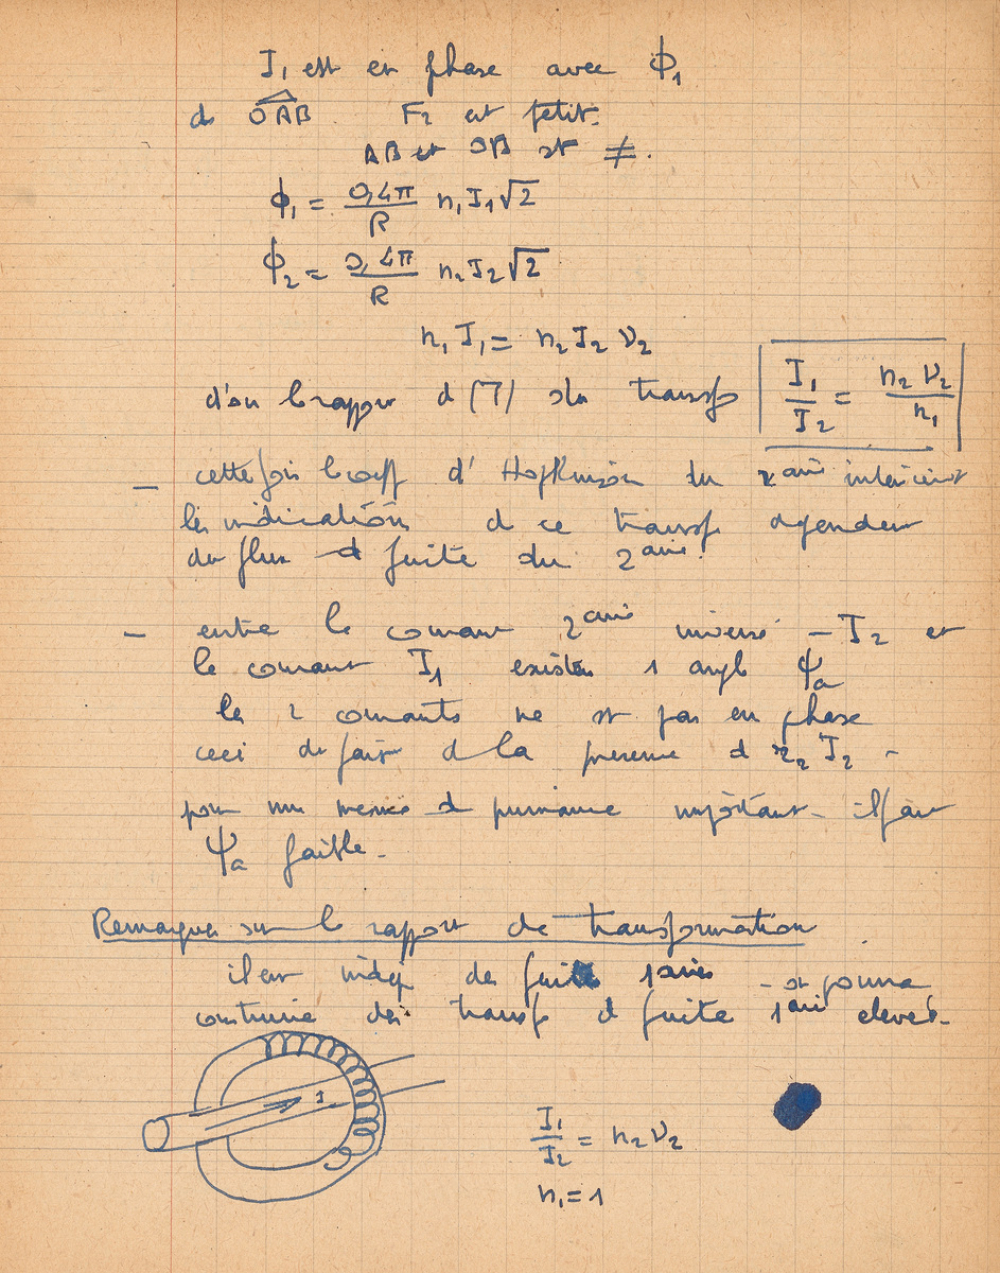 I₁ est en phase avec ϕ₁
ds OAB F₂ est petit.
AB et OB st ≠.
ϕ₁ = 0,4π/R n₁I₁√2
ϕ₂ = 0,4π/R n₂I₂√2
n₁I₁ = n₂I₂ν₂
d'où le rapport d (T) du transfo I₁/I₂ = n₂ν₂/n₁
– cette fois le coeff d'Hopkinson du 2aire intervient
les indications d ce transf dépendent
du flux d fuite du 2aire.
– entre le courant 2aire inversé – I₂ et
le courant I₁ existe 1 angle ψa
les 2 courants ne st pas en phase
ceci du fait d la présence d r₂I₂ –
pour une mesure d puissance important. il faut
ψa faible –
Remarque sur le rapport de transformation
il est indép des fuites 1aires – on pourra
construire des transfo d fuite 1aire elevés –
I
I₁/I₂ = n₂ν₂
n₁ = 1